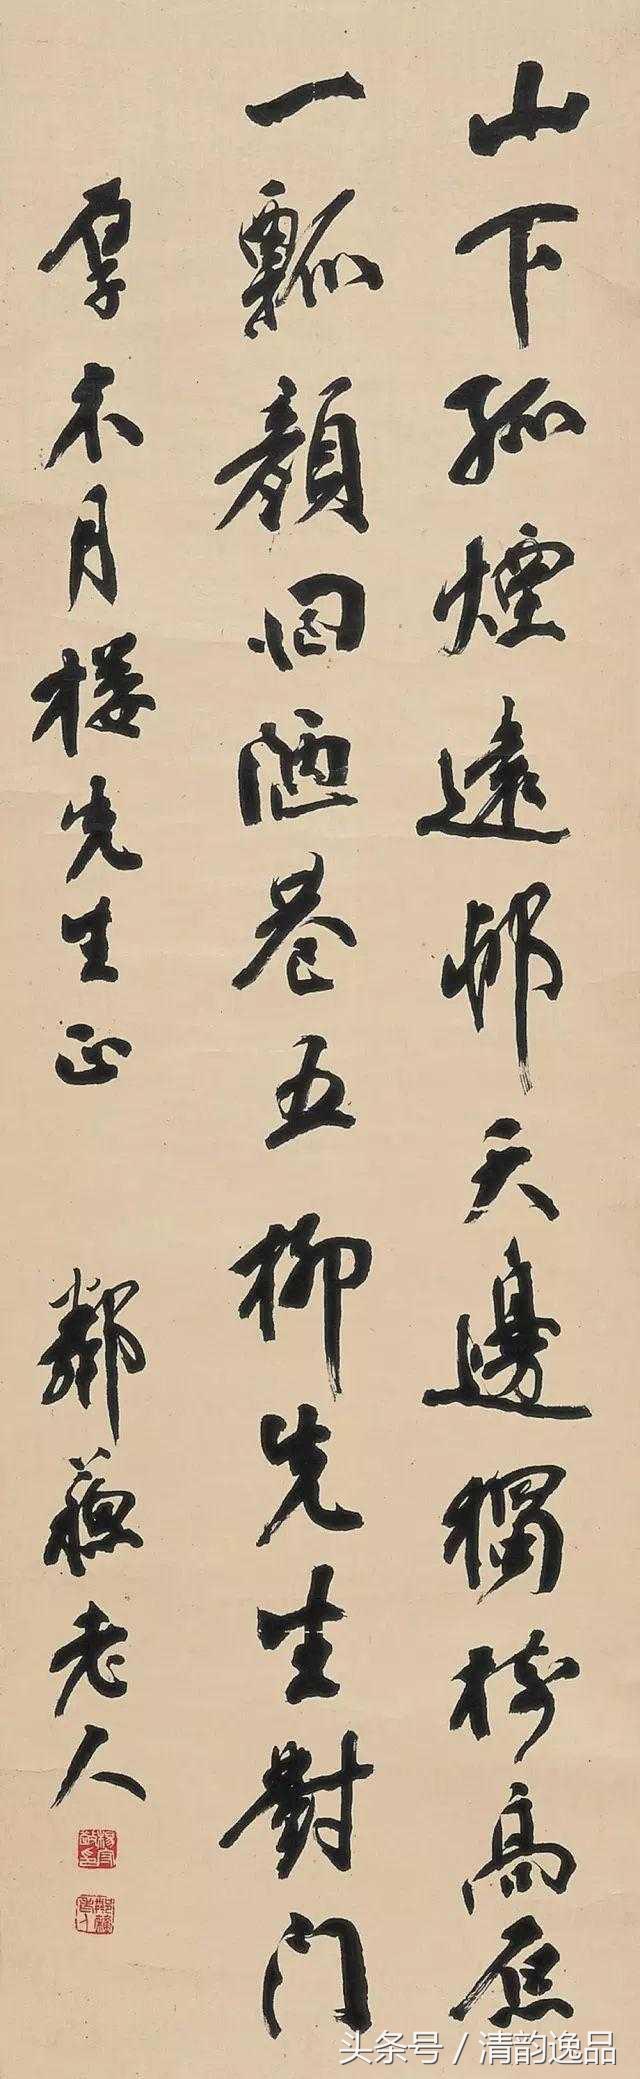 山下孤煙遠邨天邊獨樹高原
一瓢顏回陋巷五柳先生對門
厚木月樓先生正 鄰蘇老人
楊守敬印
头条号 / 清韵逸品